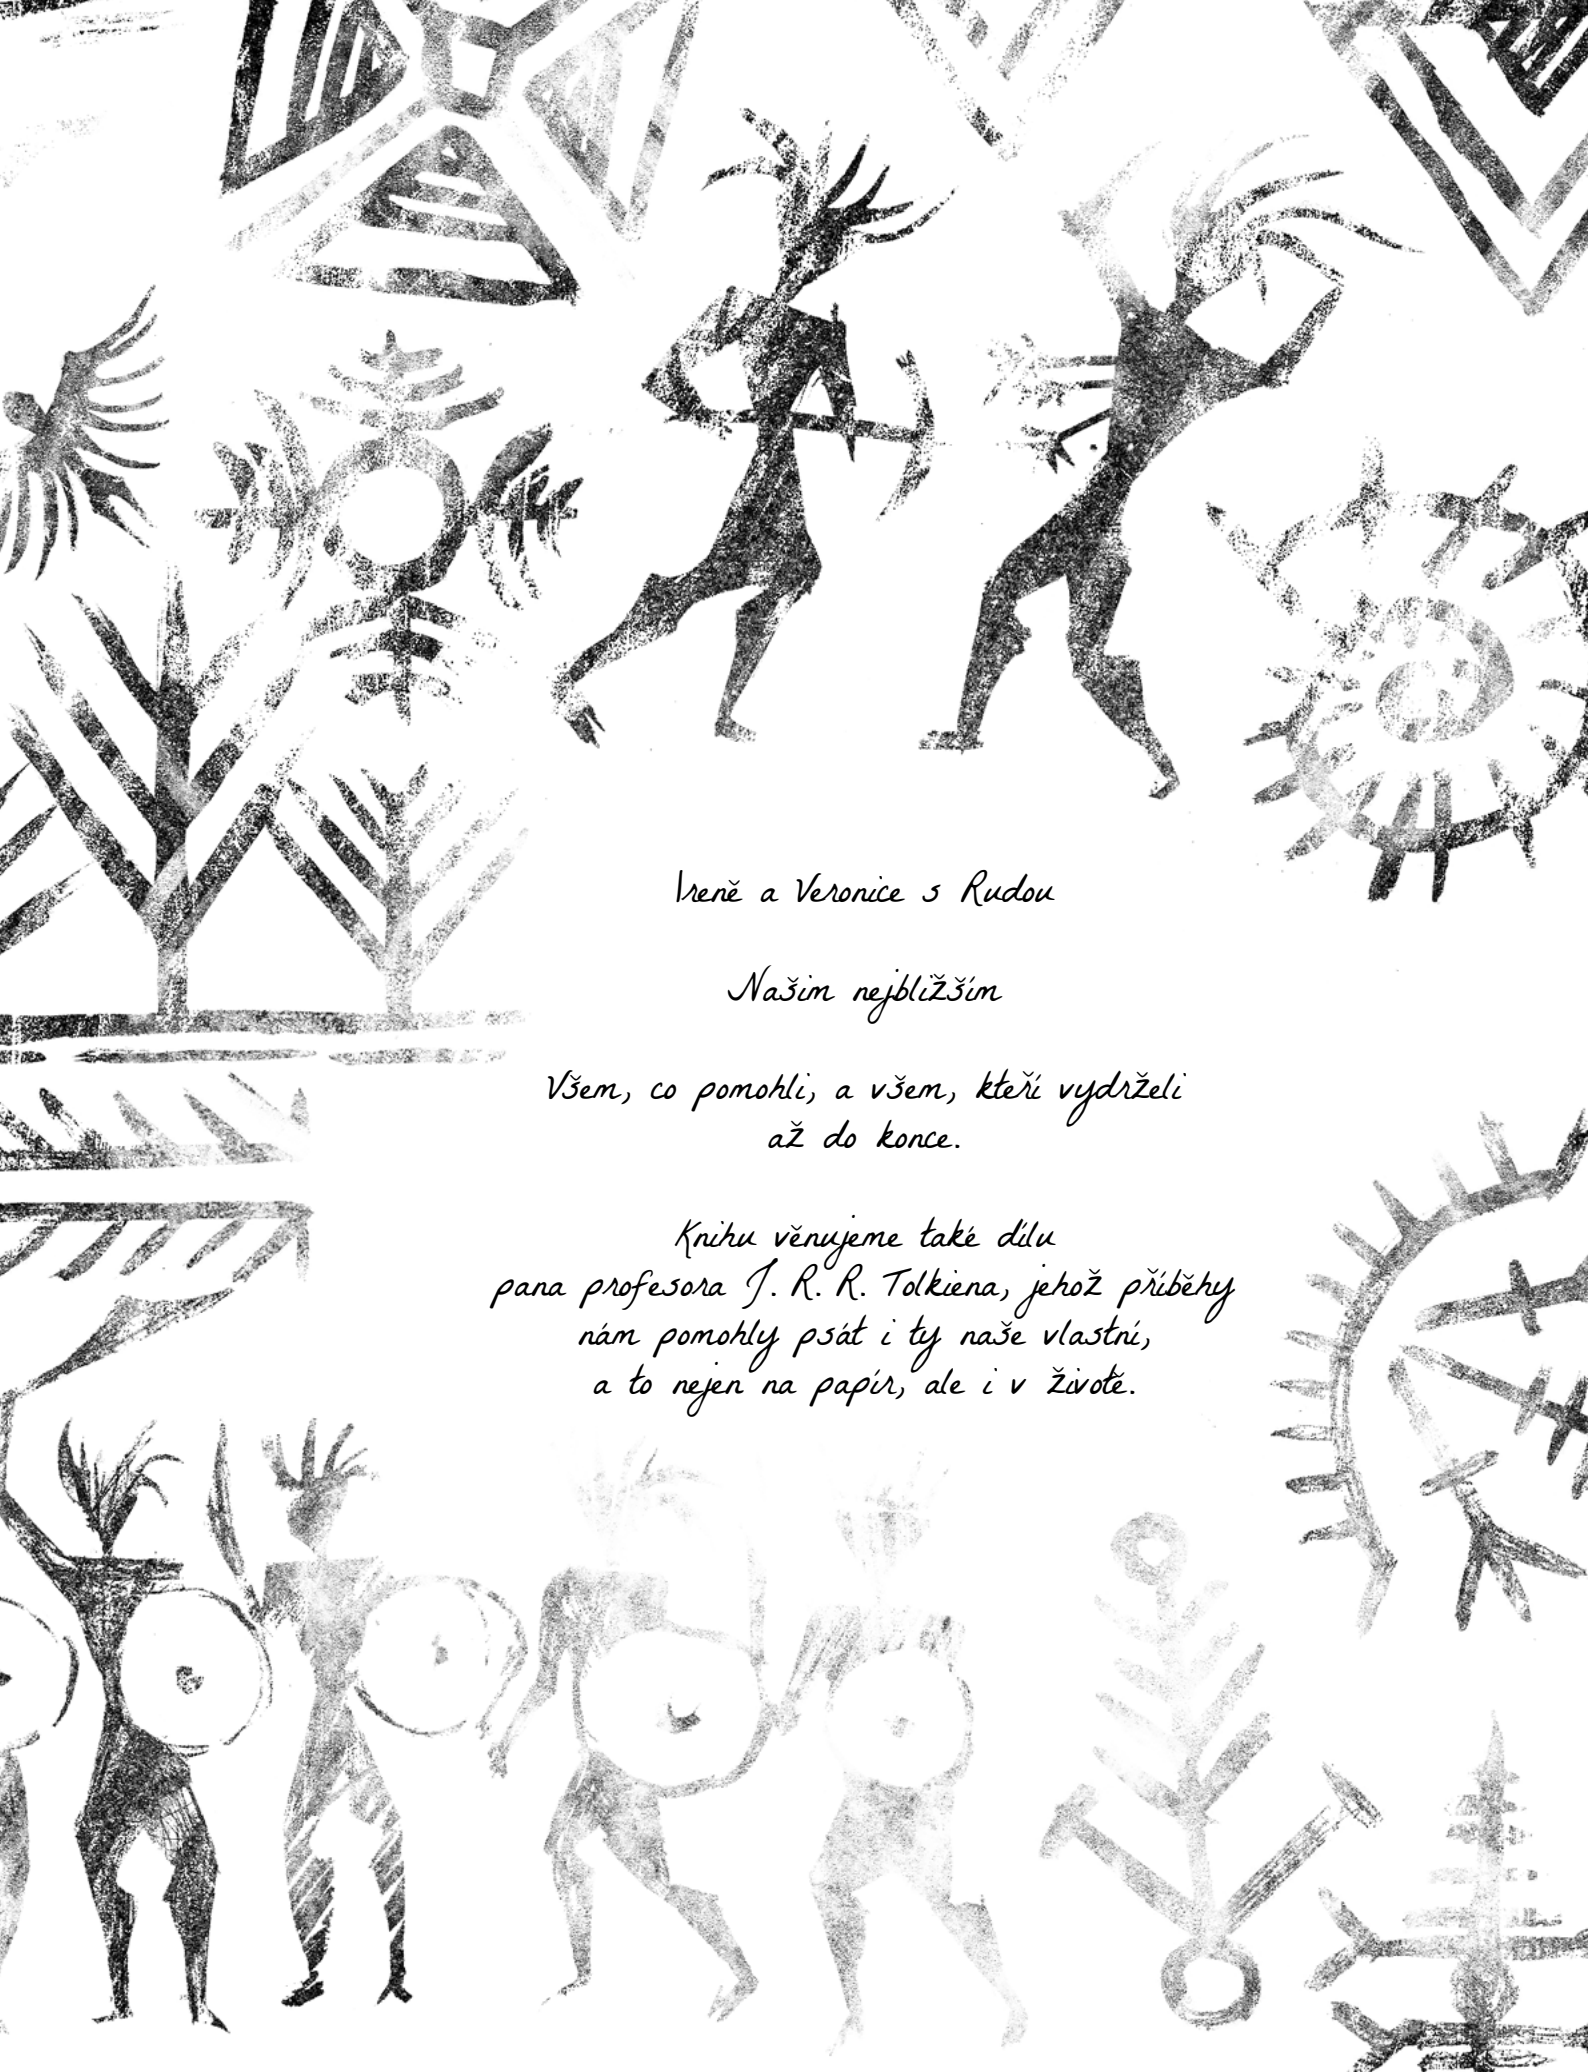 Ireně a Veronice s Rudou
Našim nejbližším
Všem, co pomohli, a všem, kteří vydrželi
až do konce.
Knihu věnujeme také dílu
pana profesora J. R. R. Tolkiena, jehož příběhy
nám pomohly psát i ty naše vlastní,
a to nejen na papír, ale i v životě.